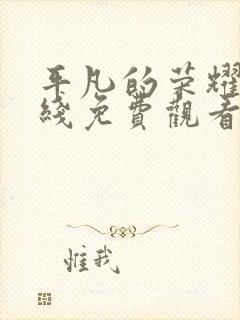 平凡的荣耀
綫免費觀看
惟我